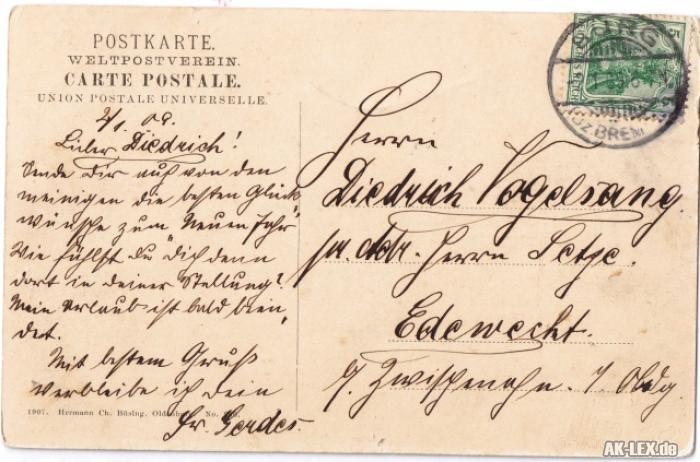 POSTKARTE.
WELTPOSTVEREIN.
CARTE POSTALE.
UNION POSTALE UNIVERSELLE.
2/1. 09.
Lieber Diedrich!
Sende Dir auch von den
meinigen die besten Glück
wünsche zum Neuen Jahr
Wie fühlst Du Dich denn
dort in deiner Stellung?
Mein Urlaub ist bald been„
det.
Mit bestem Gruß
verbleibe ich dein
Fr. Gerdes.
1907. Hermann Ch. Büsing, Oldenburg. No.
Herrn
Diedrich Vogelsang.
Herrn Setje.
Edewecht.
b/ Zwischenahn. i/ Oldg.
5
BREM
AK-LEX.de